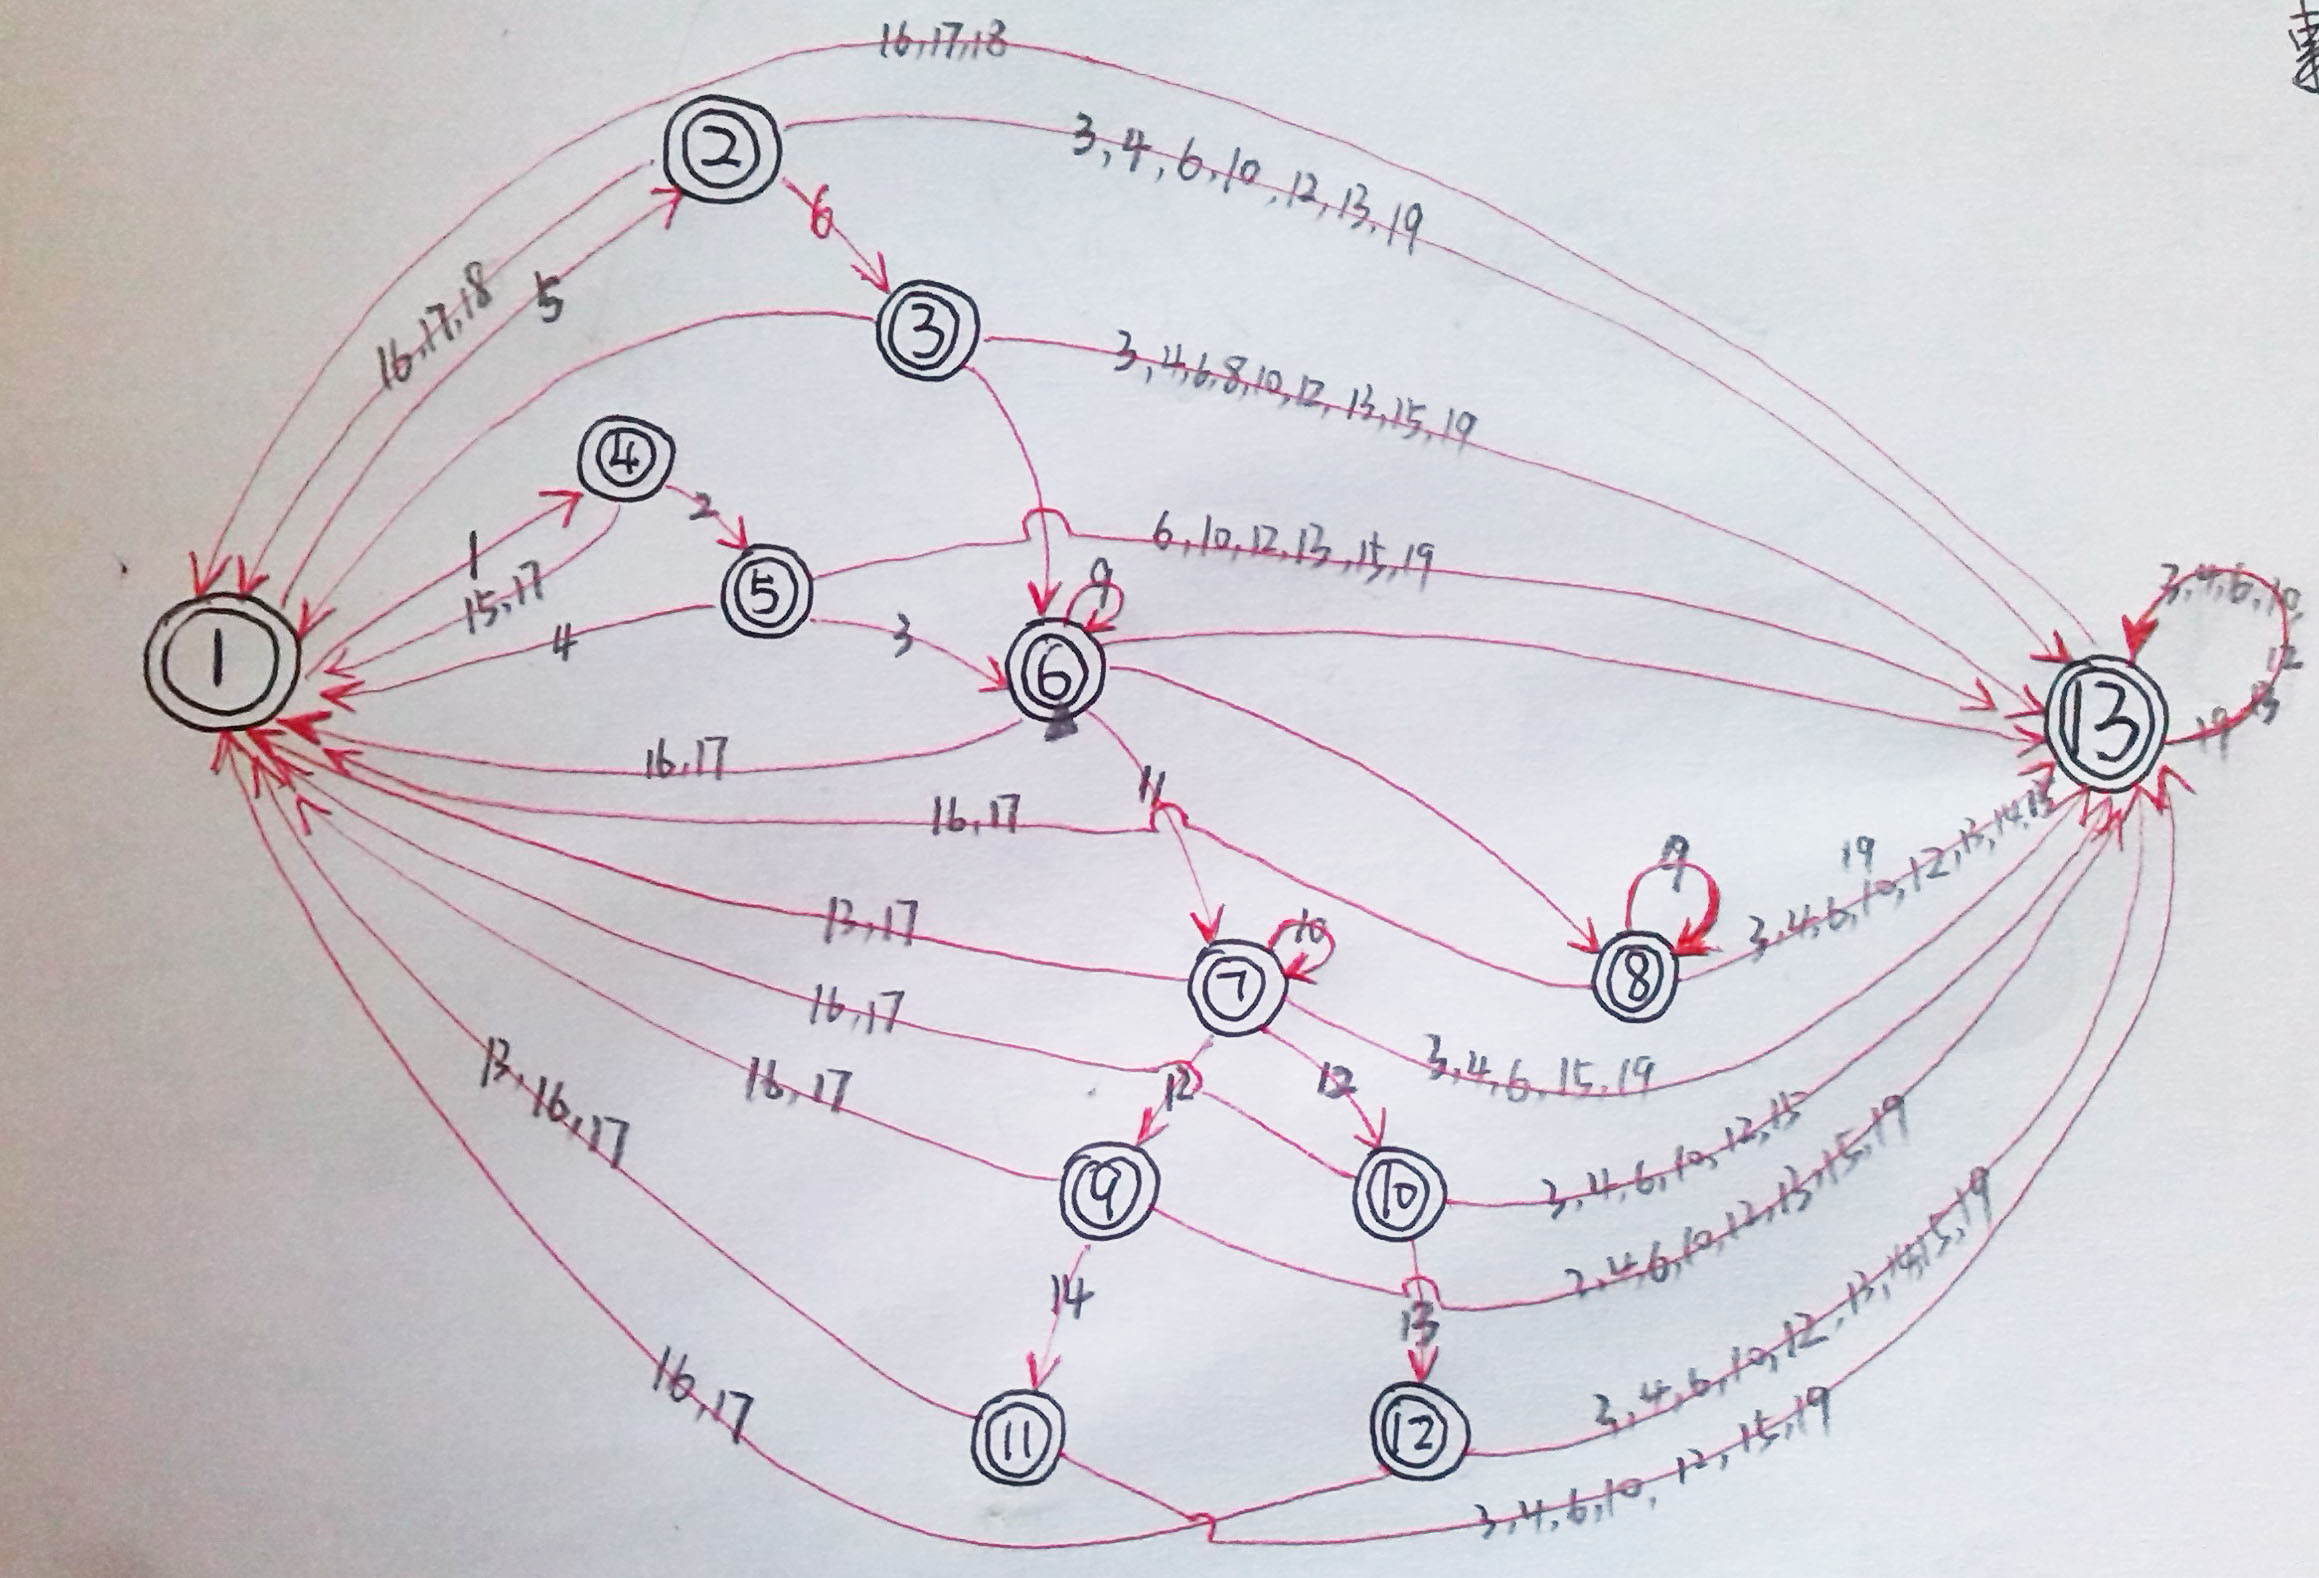 16,17,18
2
3,4,6,10,12,13,19
6
16,17,18
5
3
3,4,6,8,10,12,13,15,19
4
2
1
15,17
5
6,10,12,13,15,19
9
3,4,6,10,
12
13
19
4
3
1
6
13
16,17
11
16,17
9
19
3,4,6,10,12,13,14,15
13,17
10
7
8
16,17
3,4,6,15,19
13,16,17
16,17
12
12
9
10
3,4,6,10,12,15
2,4,6,10,12,13,15,19
14
13
16,17
11
12
2,4,6,10,12,13,14,15,19
3,4,6,10,12,15,19